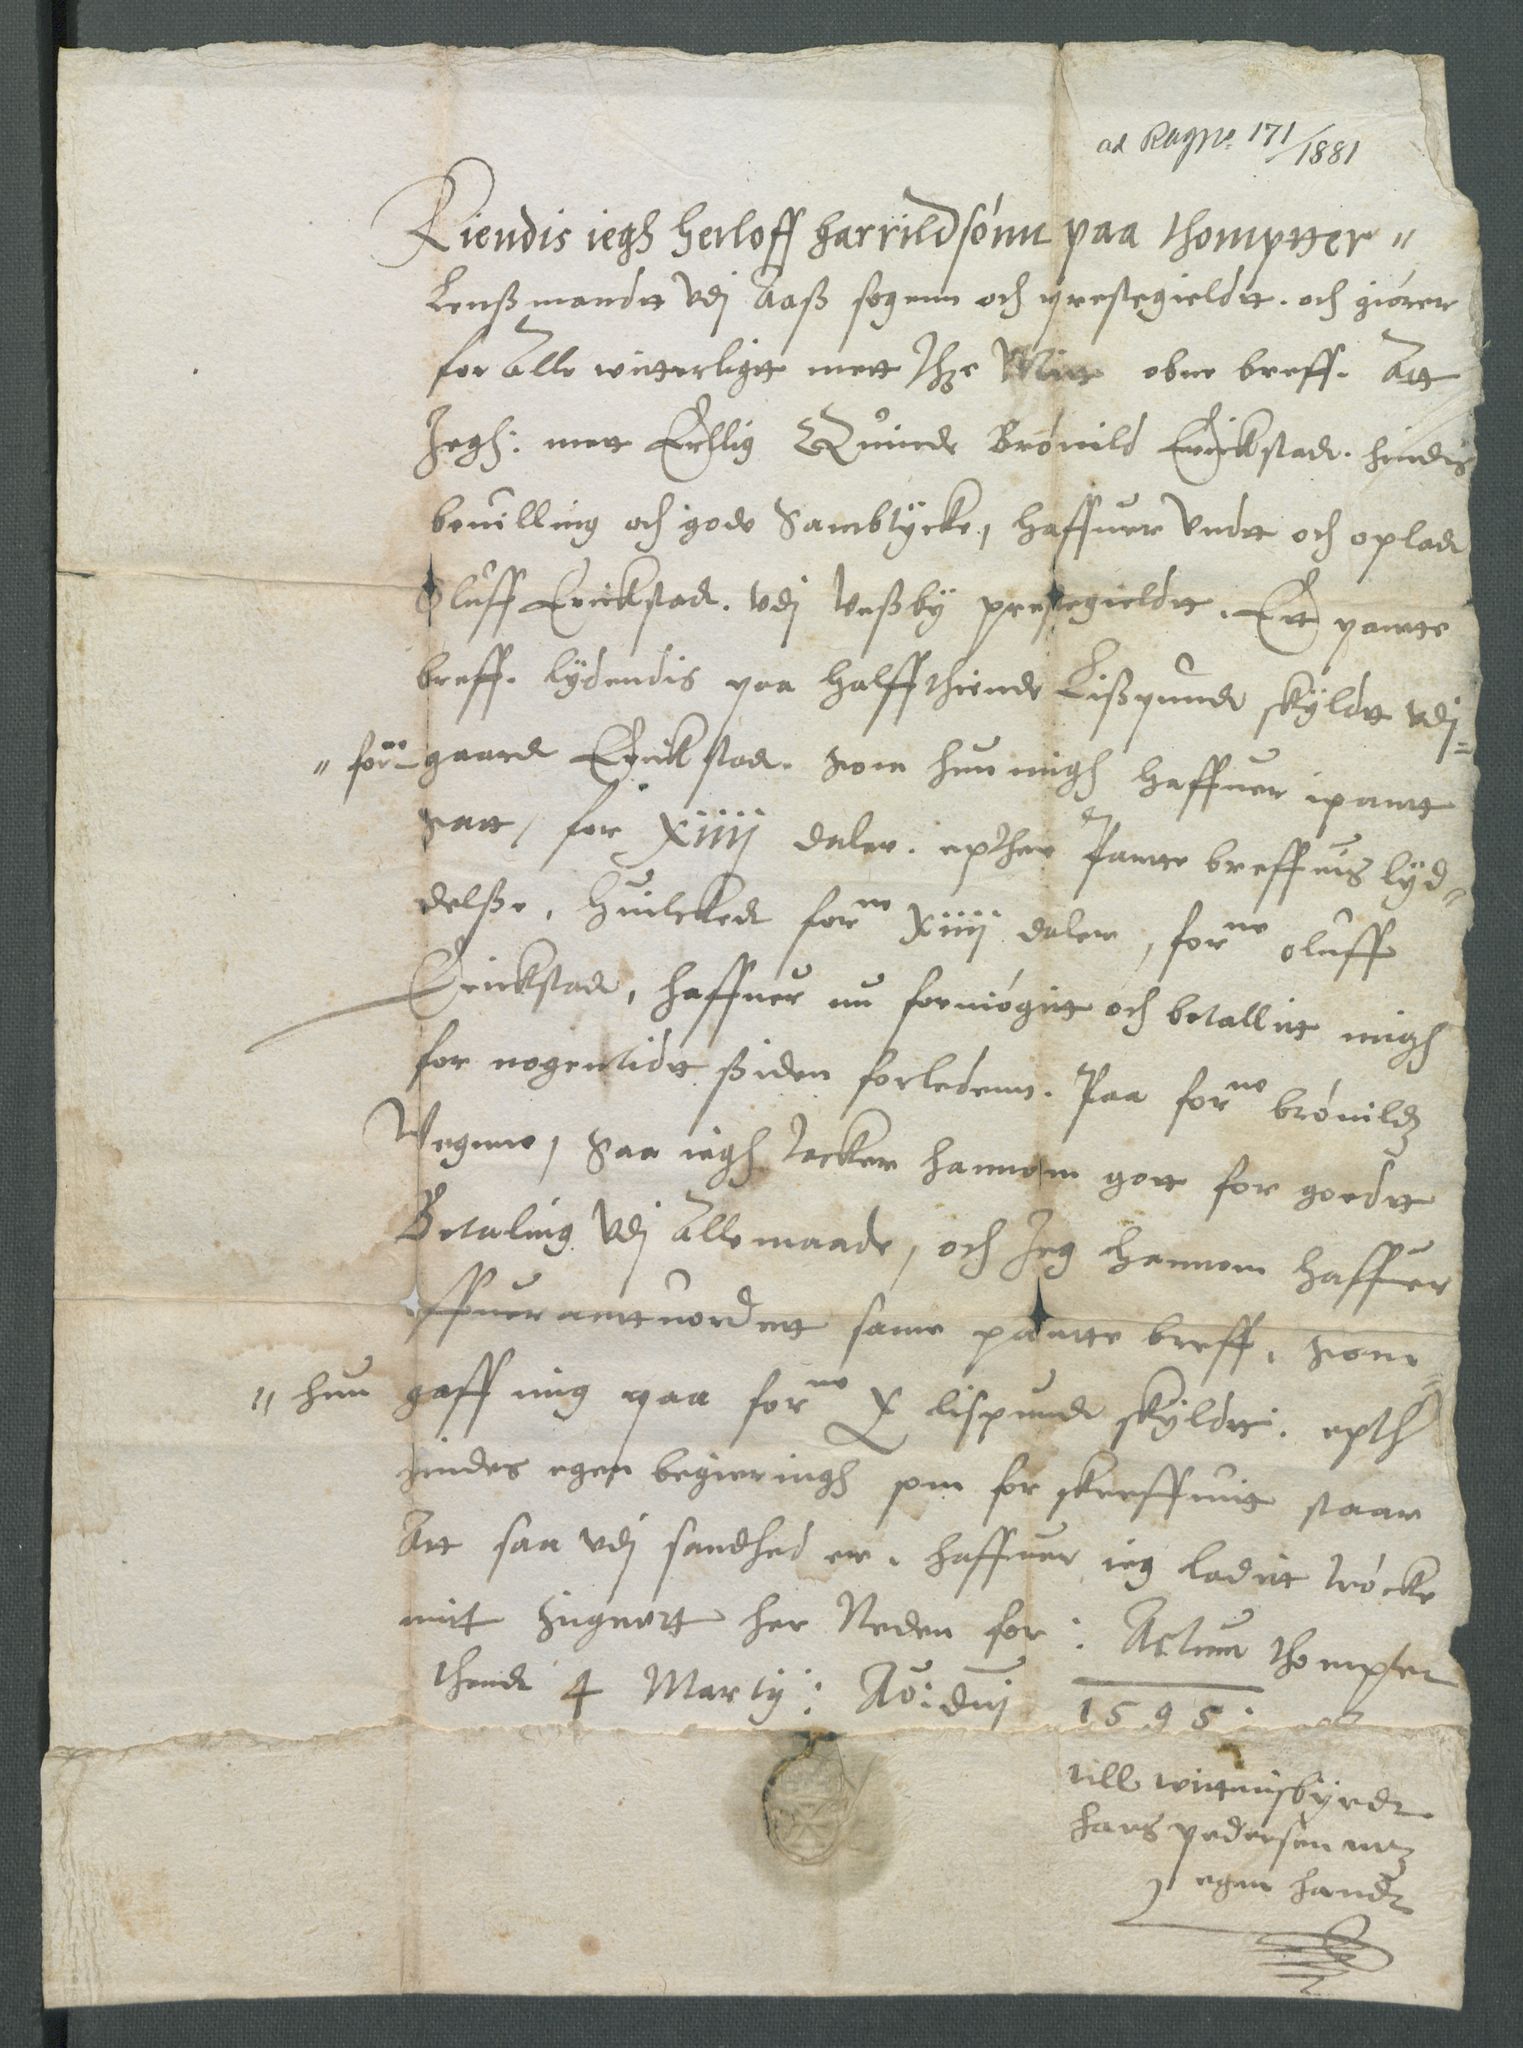 ad Ragno. 171/1881
Kiendis iegh herloff harrildsónn paa thomptter "
Lenßmandtt Vdj Aaß sogenn och prestegieldtt. och giórer
for Alle witterligtt mett thze Mitt obne breff. Att
Jegh: mett Erllig Quinde Brónild Erickstade. hindis
beuilling och gode Sambtÿcke, haffuer Vndtt och opladt
Oluff Erickstad. Vdj Veßbÿ prestegieldtt. Ett pantte
breff. lÿdendis paa halffthiende Lißpunde skÿldtt vdj=
" forne gaard Erickstad. som hun migh haffuer ipantt
satt, for xiiij daler. epther Pantte breffuis lÿd=
delße, huilcked forne xiiij daler, forne oluff
Erickstade, haffuer nu fornógitt och betallitt migh
for nogen tidtt ßiden forledenn. Paa forne brónildz
Wegnne, Saa iegh tacker hannom gott for goedtt
Betaling Vdj Alle maade, och Jeg hannom haffuer
offuer anttuordett same pantte breff, som=
" hun gaff mig paa forne X lispunde skÿldtt. epth
hindes egen begieringh som for skreffuit staar
Att saa vdj sandhed er. haffuer ieg laditt trócke
mit Zignett her Neden for: Actum thompter
thend 4 Martij: Ao: dnj 1595:
till wittnisbÿrdt
hans pedersen mz
egen handt